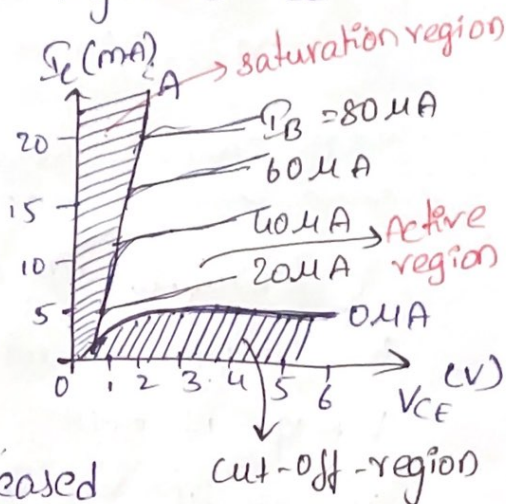 I_C (mA)
A
saturation region
20
I_B = 80 μA
60 μA
15
40 μA
Active
region
10
20 μA
5
0 μA
0 1 2 3 4 5 6
V_CE (V)
eased
cut-off-region